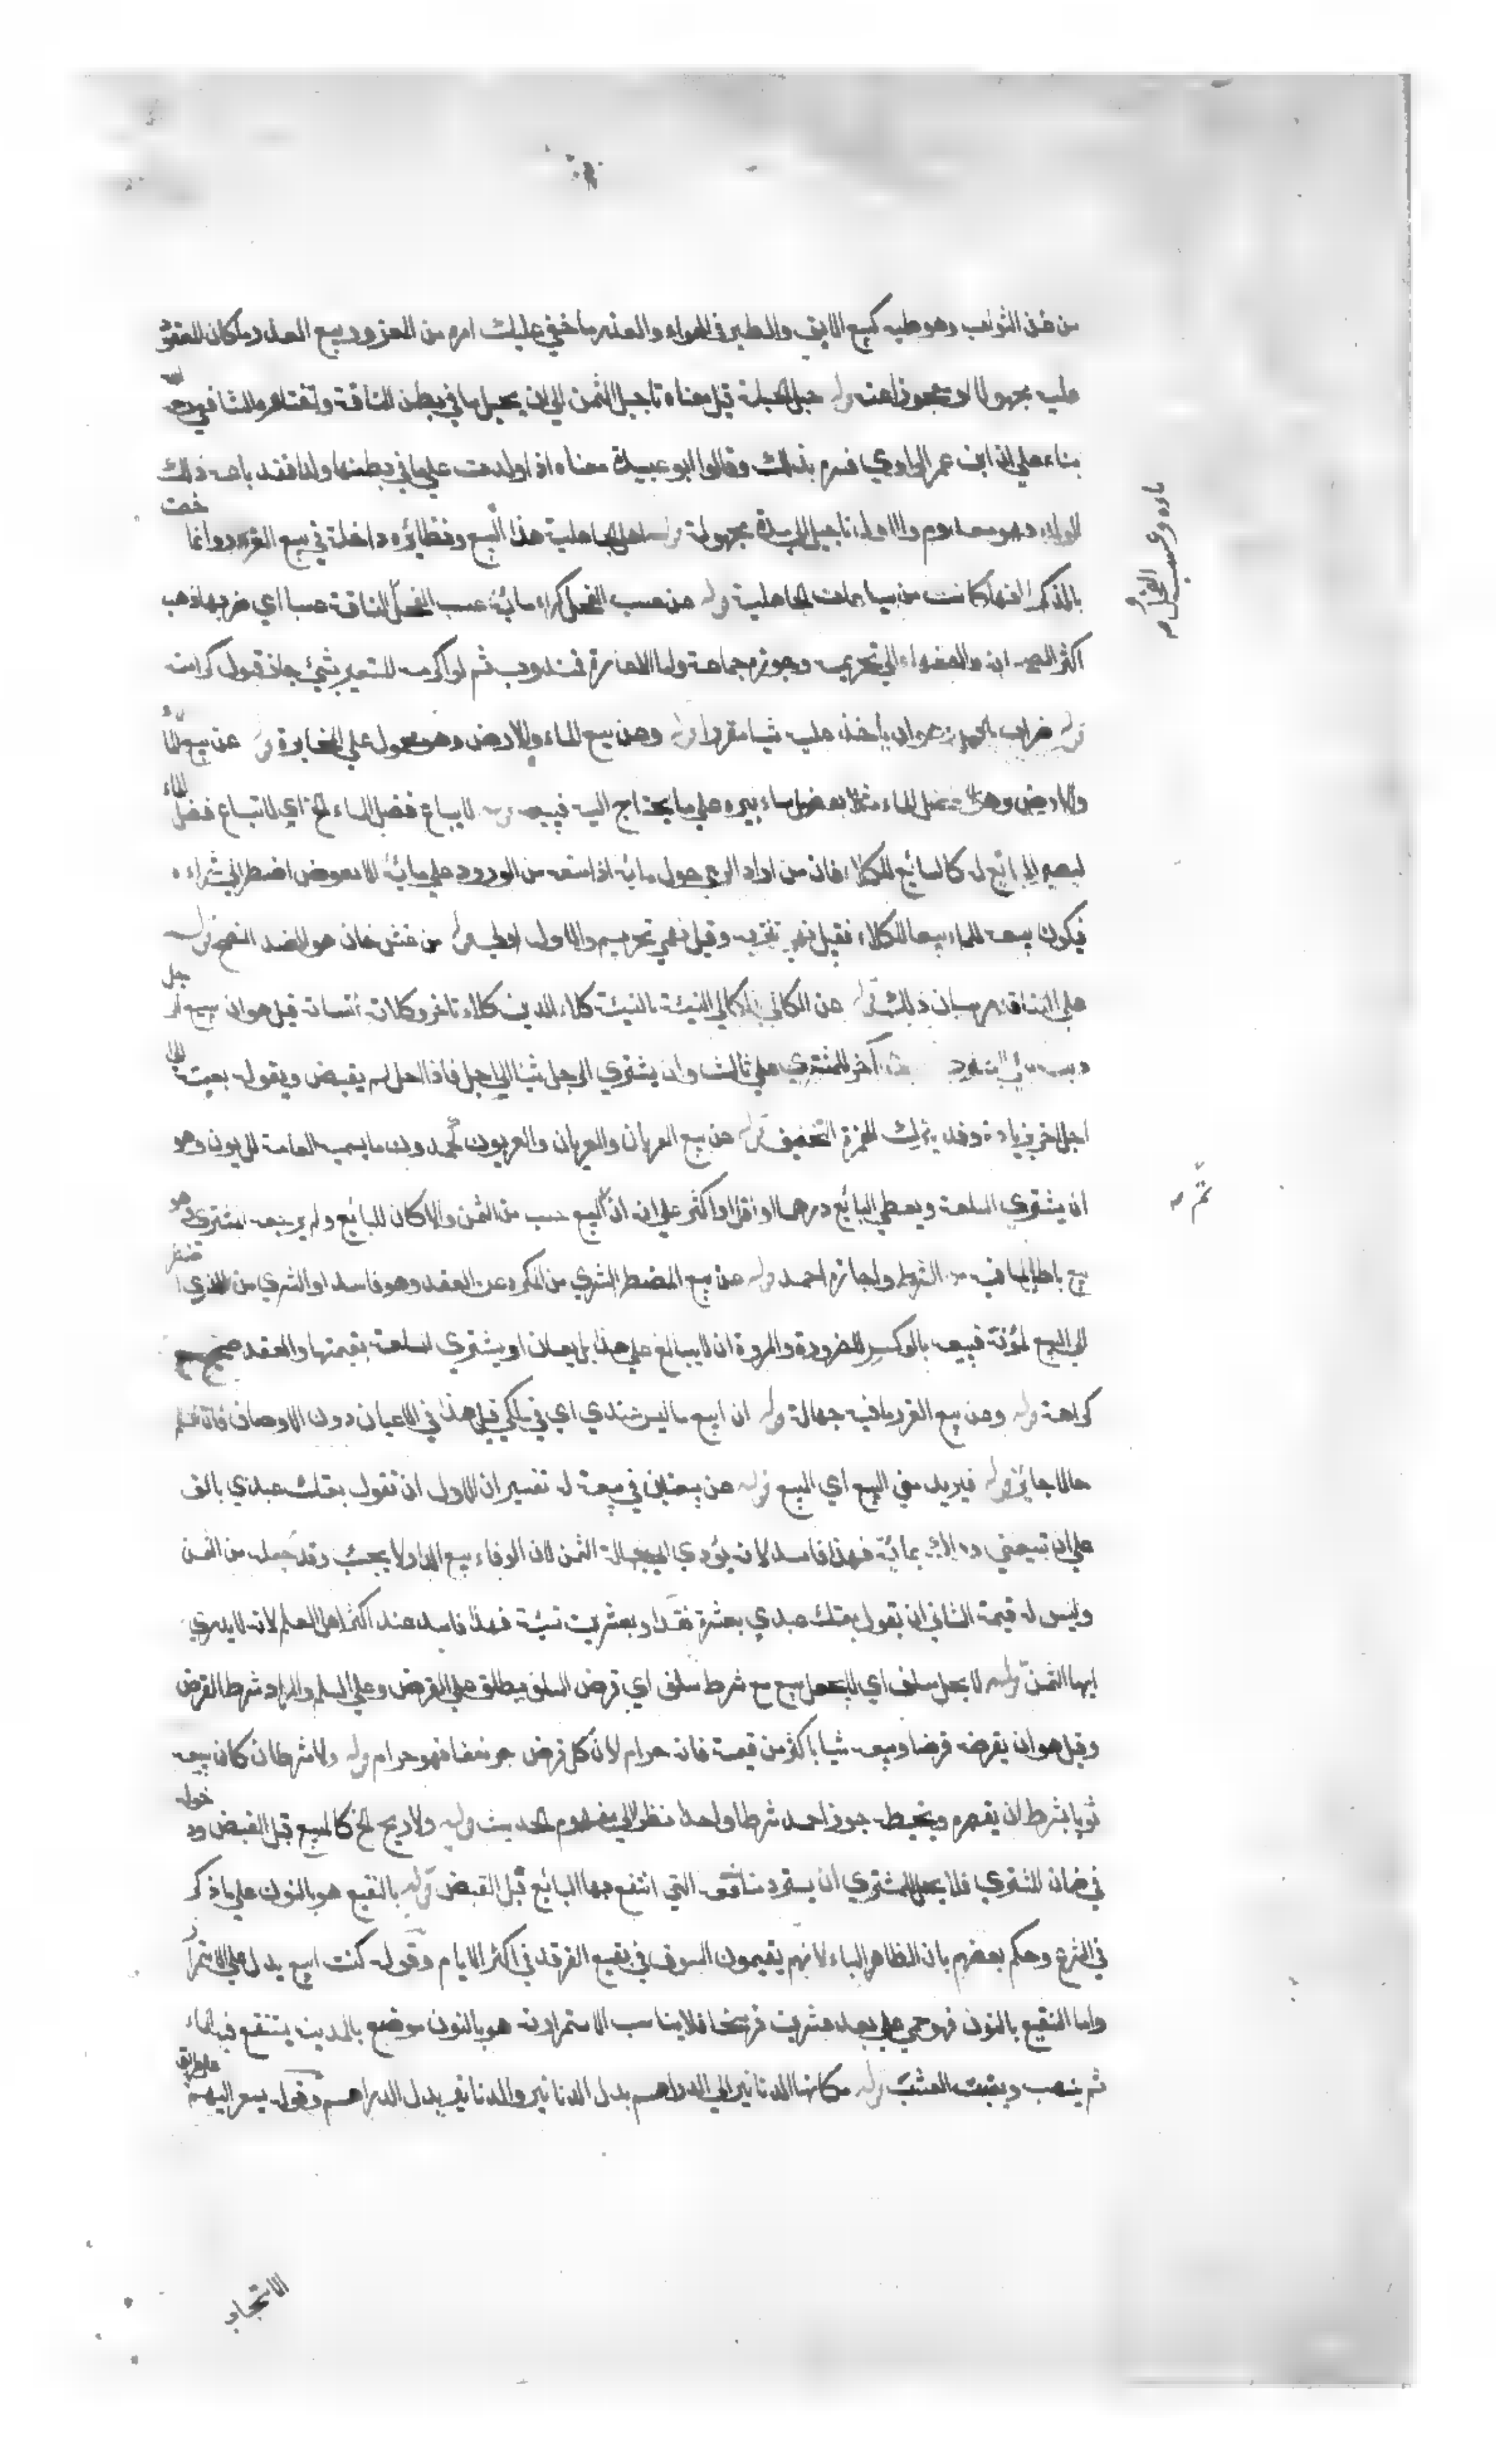 من غرّ الثوب وهو طيه كبيع الابق والطير في الهواء والغرر ما خفي عليك امره من الغرور وبيع الغرر ما كان المعقود
عليه مجهولا او معجوزا عنه قوله حبل الحبلة قيل معناه تاجيل الثمن الي ان يحبل ما في بطن الناقة واختاره الشافعي رحمه الله
بناء علي ان ابن عمر الراوي فسره بذلك وقال ابو عبيدة معناه اذا ولدت علي ما في بطنها ولدا فقد باعه ذلك
الولد وهو معدوم والاول تاجيل الي مدة مجهولة قوله اهل الجاهلية هذا البيع ونظائره داخلة في بيع الغرر وانما خصت
بالذكر لانها كانت من بياعات الجاهلية قوله عن عسب الفحل كراء مائه عسب الفحل الناقة عسبا اي ضربها ذهب
ماءه وعسب الفحل
اكثر الصحابة والفقهاء الي تحريمه وجوزه جماعة واما الاعارة فمندوب ثم لو اكرمه المستعير بشيء جاز قبول كرامته
قوله ضراب الجمل هو ان ياخذ عليه شيا مقررا قوله وعن بيع الماء والارض وهو محمول علي المخابرة قوله عن بيع الماء
والارض وهو فضل الماء ماء بيره علي ما يحتاج اليه فيبيعه قوله لا يباع فضل الماء الخ اي لا يباع فضل الماء
ليصير البائع له كالبائع للكلاء فان من اراد الرعي حول مائه اذا منعه من الورود علي مائه الا بعوض اضطر الي شراءه
فيكون بيعه للماء بيعا للكلاء فقيل نهي تنزيه وقيل نهي تحريم والاول اولي قوله من غش خان هو ضد النصح قوله
علي الثنيا بيان ذلك قوله عن الكالي بالكالي النسيئة بالنسيئة كلاء الدين كلاء تاخر وكلاته انساته قيل هو ان يبيع الرجل
آخر للمشتري علي ثالث وان يشتري الرجل شيا الي اجل فاذا حل لم يقبض ويقول بعته الي
اجل اخر بزيادة وقد يترك الهمزة للتخفيف قوله عن بيع العربان والعربان والعربون كحمدون ما يسميه العامة الربون وهو
ان يشتري السلعة ويعطي البائع درهما او اقل او اكثر علي انه ان تم البيع حسب من الثمن والا كان للبائع ولم يرجعه المشتري وهو
تمّ
بيع باطل لما فيه من الشرط واجازه احمد قوله عن بيع المضطر الشري من المكره عن العقد وهو فاسد او الشري من الذي اضطر
الي البيع لمؤنة فيبيعه بالوكس للضرورة والمروة ان لا يبايع علي هذا بل يعان او يشتري السلعة بقيمتها والعقد صحيح مع
كراهة قوله وعن بيع الغرر ما فيه جهالة قوله ان ابيع ما ليس عندي اي في ملكي قيل هذا في الاعيان دون الاوصاف فانه السلم
حالا جائز قوله فيريد مني البيع اي المبيع قوله عن بيعتين في بيعة له تفسيران الاول ان تقول بعتك عبدي بالف
علي ان تبيعني دارك بمائة فهذا فاسد لانه يؤدي الي جهالة الثمن لان الوفاء ببيع الدار لا يجب وقد جعله من الثمن
وليس له قيمة الثاني ان تقول بعتك عبدي بعشرة نقدا وبعشرين نسيئة فهذا فاسد عند اكثر اهل العلم لانه لا يدري
ايها الثمن قوله لا يحل سلف اي لا يحل بيع مع شرط سلف اي قرض السلف يطلق علي القرض وعلي السلم والمراد شرط القرض
وقيل هو ان يقرضه قرضا ويبيعه شيا باكثر من قيمته فانه حرام لان كل قرض جر نفعا فهو حرام قوله ولا شرطان كان يبيعه
ثوبا بشرط ان يقصره ويخيطه جوز احمد شرطا واحدا نظرا الي مفهوم الحديث قوله ولا ربح الخ كالمبيع قبل القبض ودخوله
في ضمان المشتري فلا يحل للمشتري ان يسترد منافعه التي انتفع بها البائع قبل القبض قوله بالنقيع هو بالنون علي ما ذكر
في الشرع وحكم بعضهم بان الظاهر الباء لانهم يقيمون السوق في بقيع الغرقد في اكثر الايام وقوله كنت ابيع يدل علي الاستمرار
واما النقيع بالنون فهو حمي علي بعد عشرين فرسخا فلا يناسب الاستمرار هو بالنون موضع بالمدينة يستنقع فيه الماء
ثم ينصب وينبت العشب قوله مكانها الدنانير اي الدراهم بدل الدنانير والدنانير بدل الدراهم وقوله بسعر اليوم علي طريق
الاتحاد